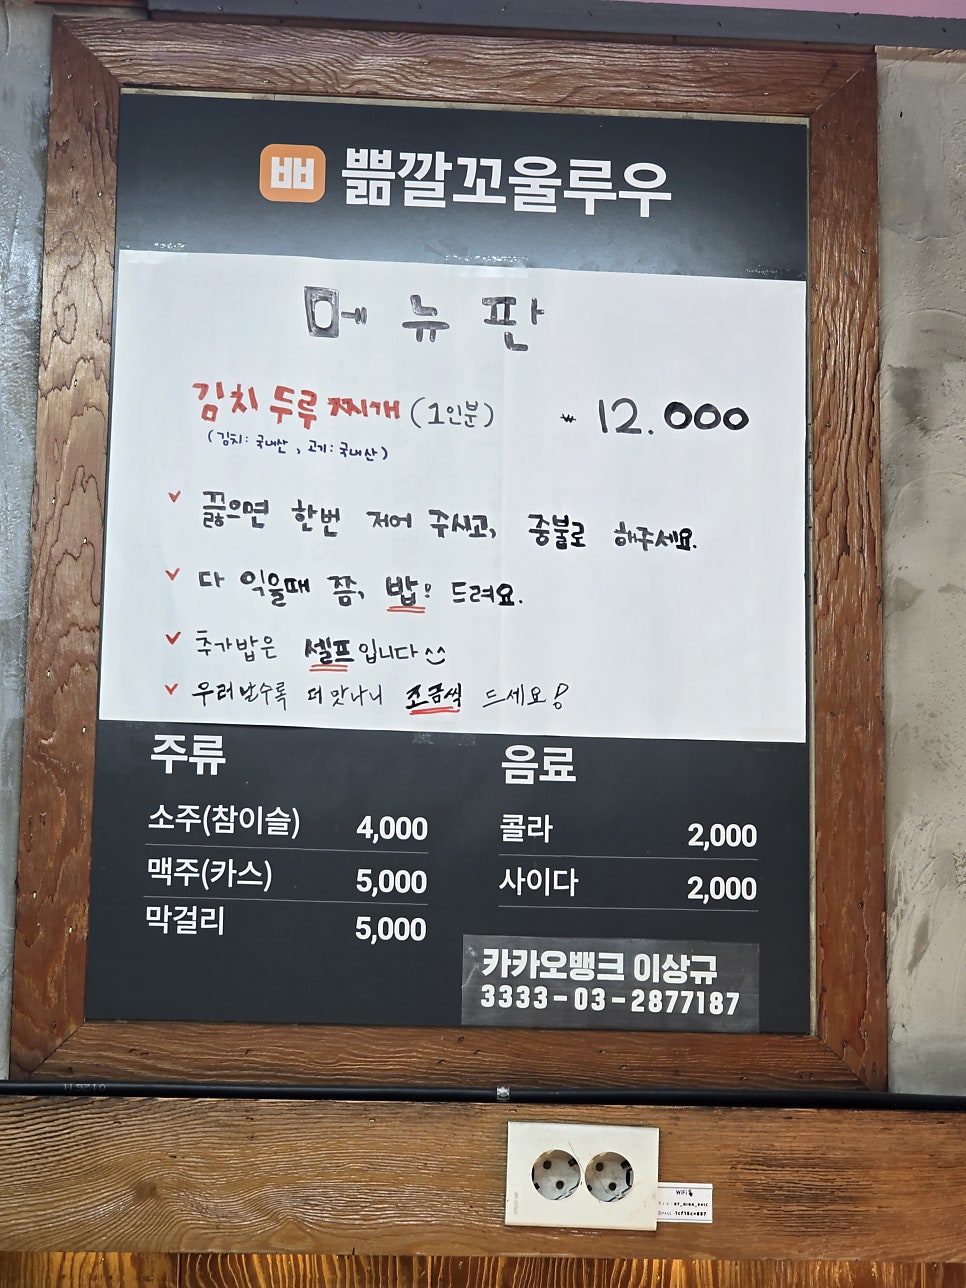 쁢 쁢깔꼬울루우
메뉴판
김치 두루 찌개 (1인분) ₩ 12.000
(김치: 국내산, 고기: 국내산)
✓ 끓으면 한번 저어 주시고, 중불로 해주세요.
✓ 다 익을때 쯤, 밥! 드려요.
✓ 추가밥은 셀프입니다^^
✓ 우러날수록 더 맛나니 조금씩 드세요!
주류
소주(참이슬) 4,000
맥주(카스) 5,000
막걸리 5,000
음료
콜라 2,000
사이다 2,000
카카오뱅크 이상규
3333-03-2877187
WiFi